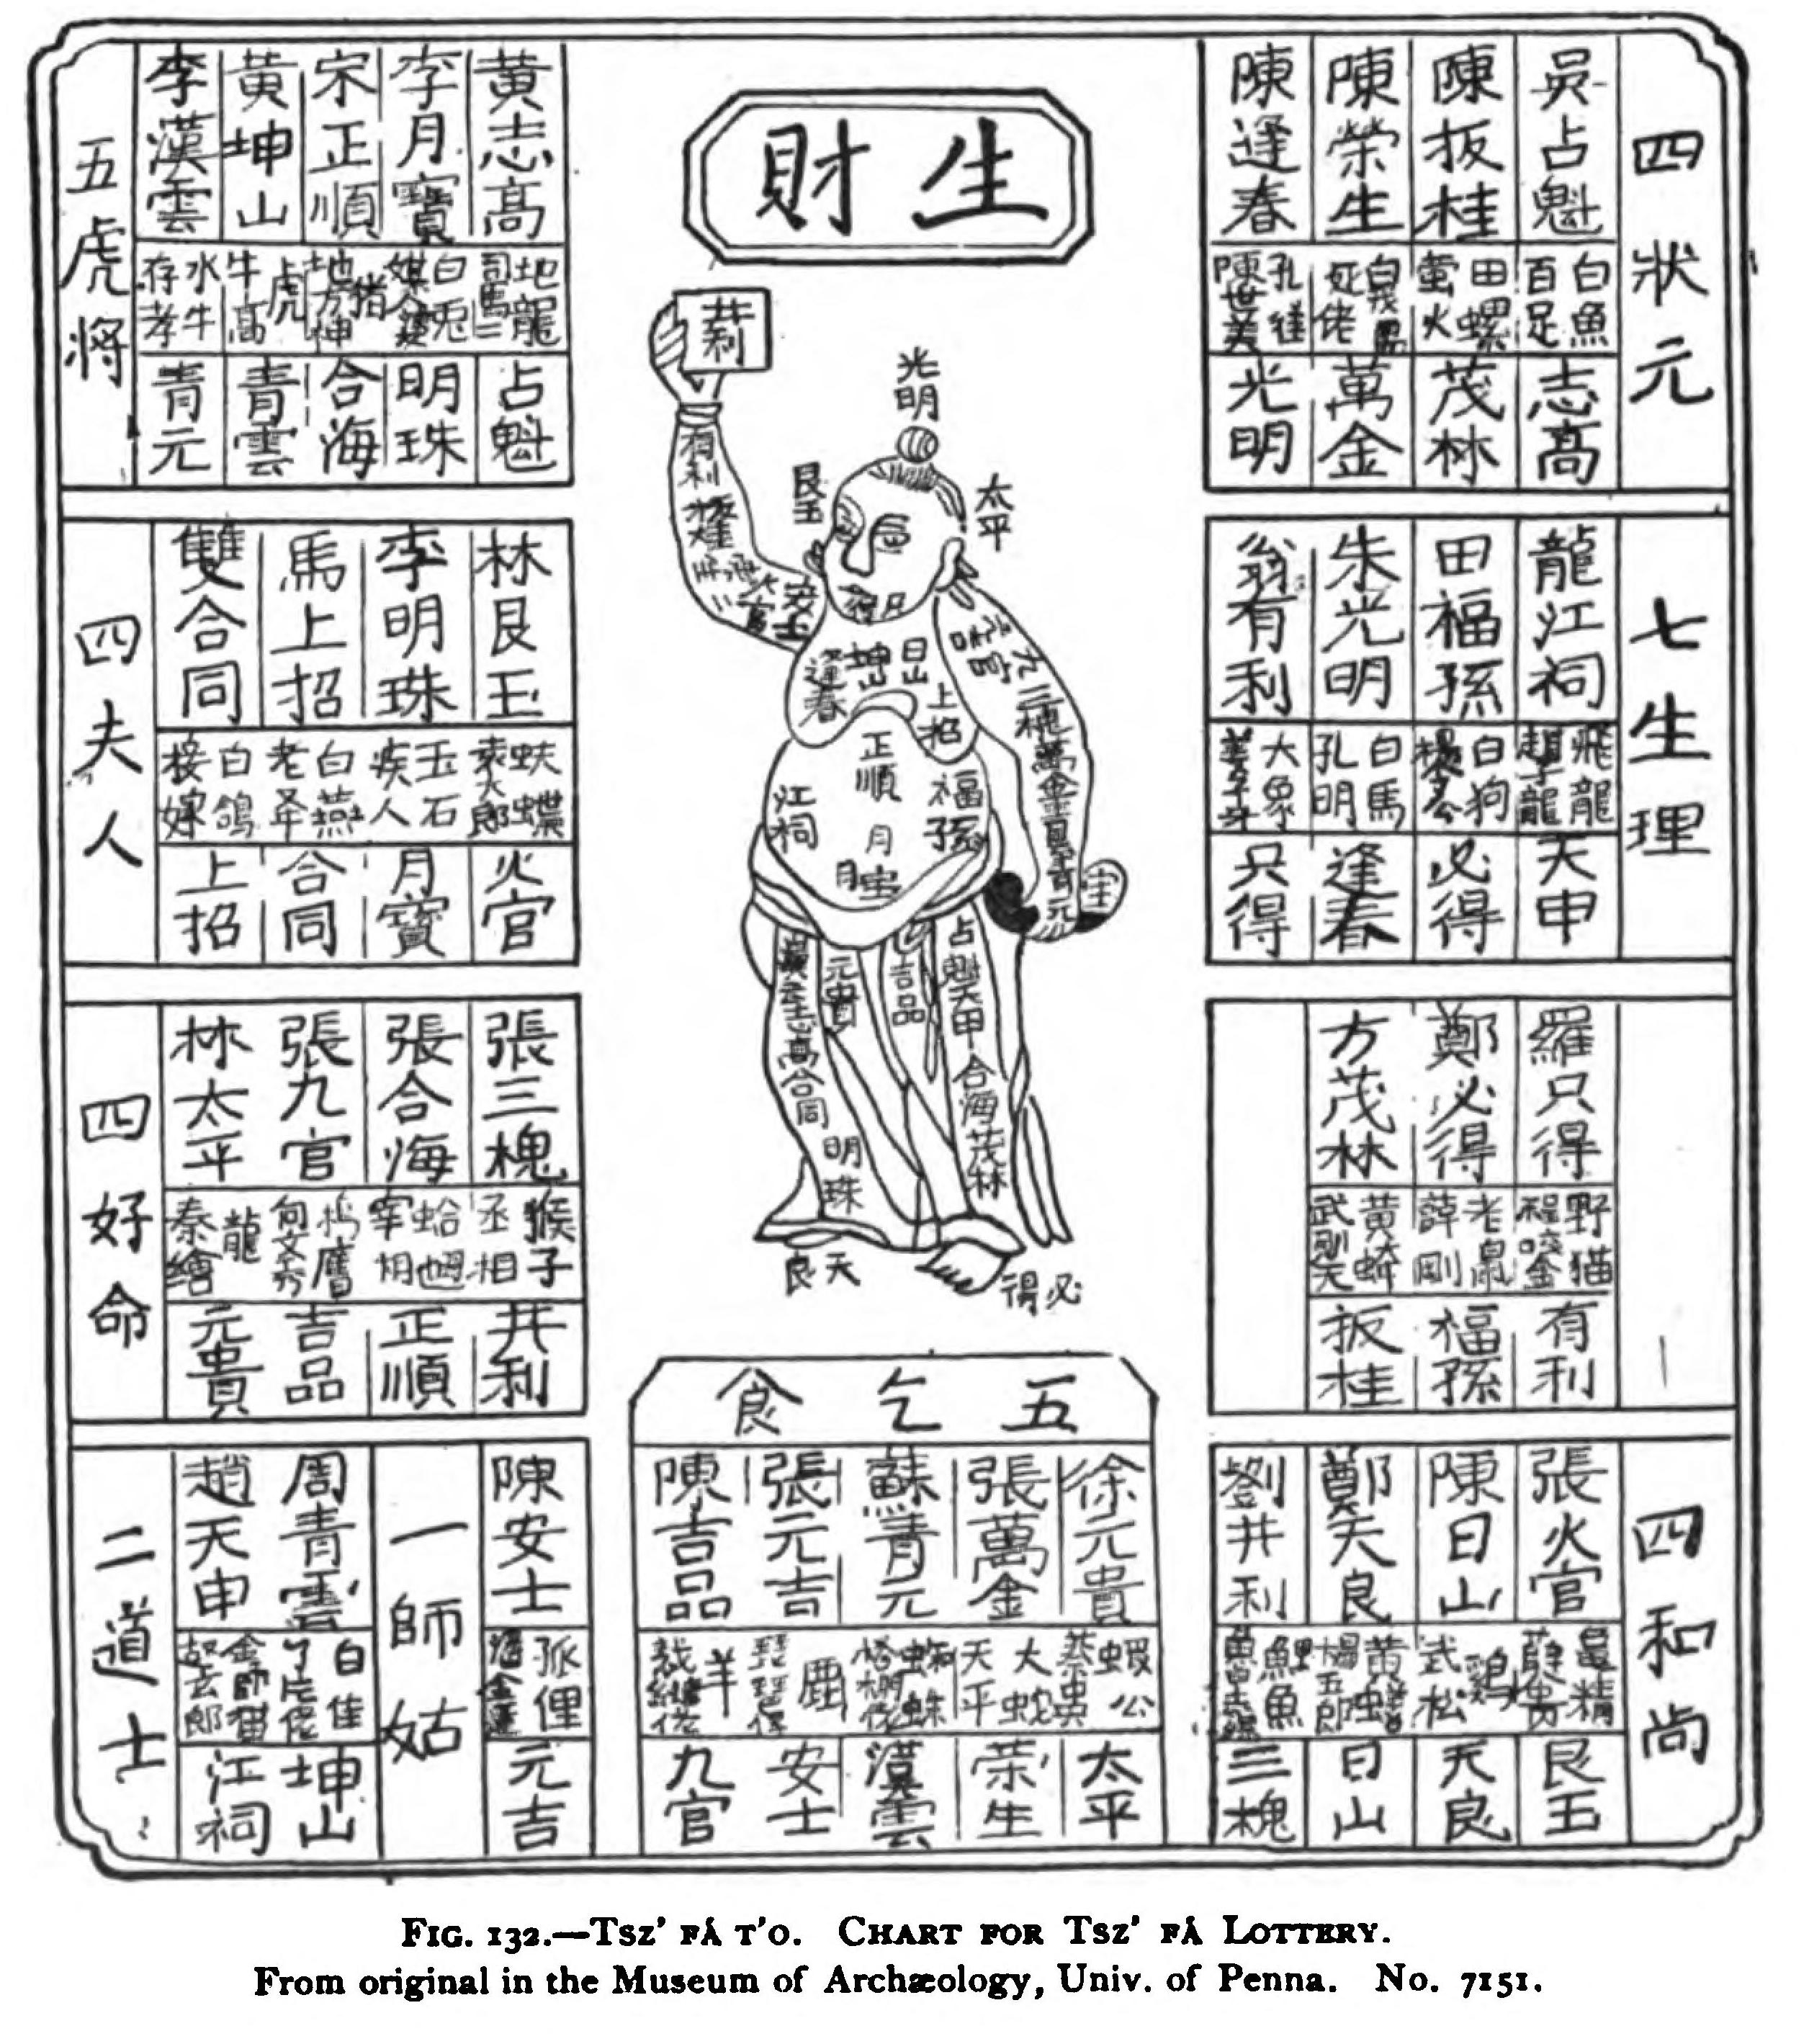 生財
四狀元
吳占魁
白魚
百足
志高
陳扳桂
田螺
螢火
茂林
陳榮生
死佬
萬金
陳逢春
陳世美
光明
七生理
龍江祠
飛龍
趙子龍
天申
田福孫
白狗
必得
朱光明
白馬
孔明
逢春
翁有利
大象
只得
羅只得
野猫
程咬金
有利
鄭必得
老鼠
薛剛
福孫
方茂林
黃蜂
扳桂
四和尚
張火官
艮玉
陳日山
鷄
武松
天良
鄭天良
黃蟮
楊五郎
日山
劉井利
鯉魚
三槐
五乞食
徐元貴
蝦公
太平
張萬金
大蛇
天平
荣生
蘇青元
蜘蛛
漢雲
張元吉
鹿
安士
陳吉品
羊
九官
五虎將
黃志高
地龍
司馬
占魁
李月寶
白兎
明珠
宋正順
猪
合海
黃坤山
虎
牛高
青雲
李漢雲
水牛
存孝
青元
四夫人
林艮玉
蚨蝶
火官
李明珠
玉石
疾人
月寶
馬上招
白燕
合同
雙合同
白鴿
接嫁
上招
四好命
張三槐
猴子
丞相
井利
張合海
蛤
宰相
正順
張九官
吉品
林太平
龍
秦繪
元貴
一師姑
陳安士
狐狸
元吉
二道士
周青雲
坤山
趙天申
江祠
光明
艮玉
太平
有利
安士
日山
坤山
逢春
上招
正順
江祠
福孫
九官
三槐
萬金
占魁
合海
茂林
吉品
元貴
志高
合同
明珠
天良
必得
FIG. 132.—TSZ’ FÁ T’O. CHART FOR TSZ’ FÁ LOTTERY.
From original in the Museum of Archæology, Univ. of Penna. No. 7151.